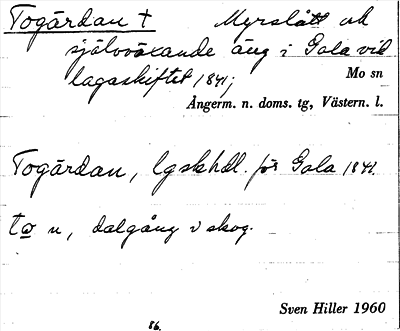 Togärdan † Myrslått och
självväxande äng i Gala vid
lagaskiftet 1841;
Mo sn
Ångerm. n. doms. tg, Västern. l.
Togärdan, lgskhdl. för Gala 1841.
to n, dalgång v skog.
Sven Hiller 1960
86.